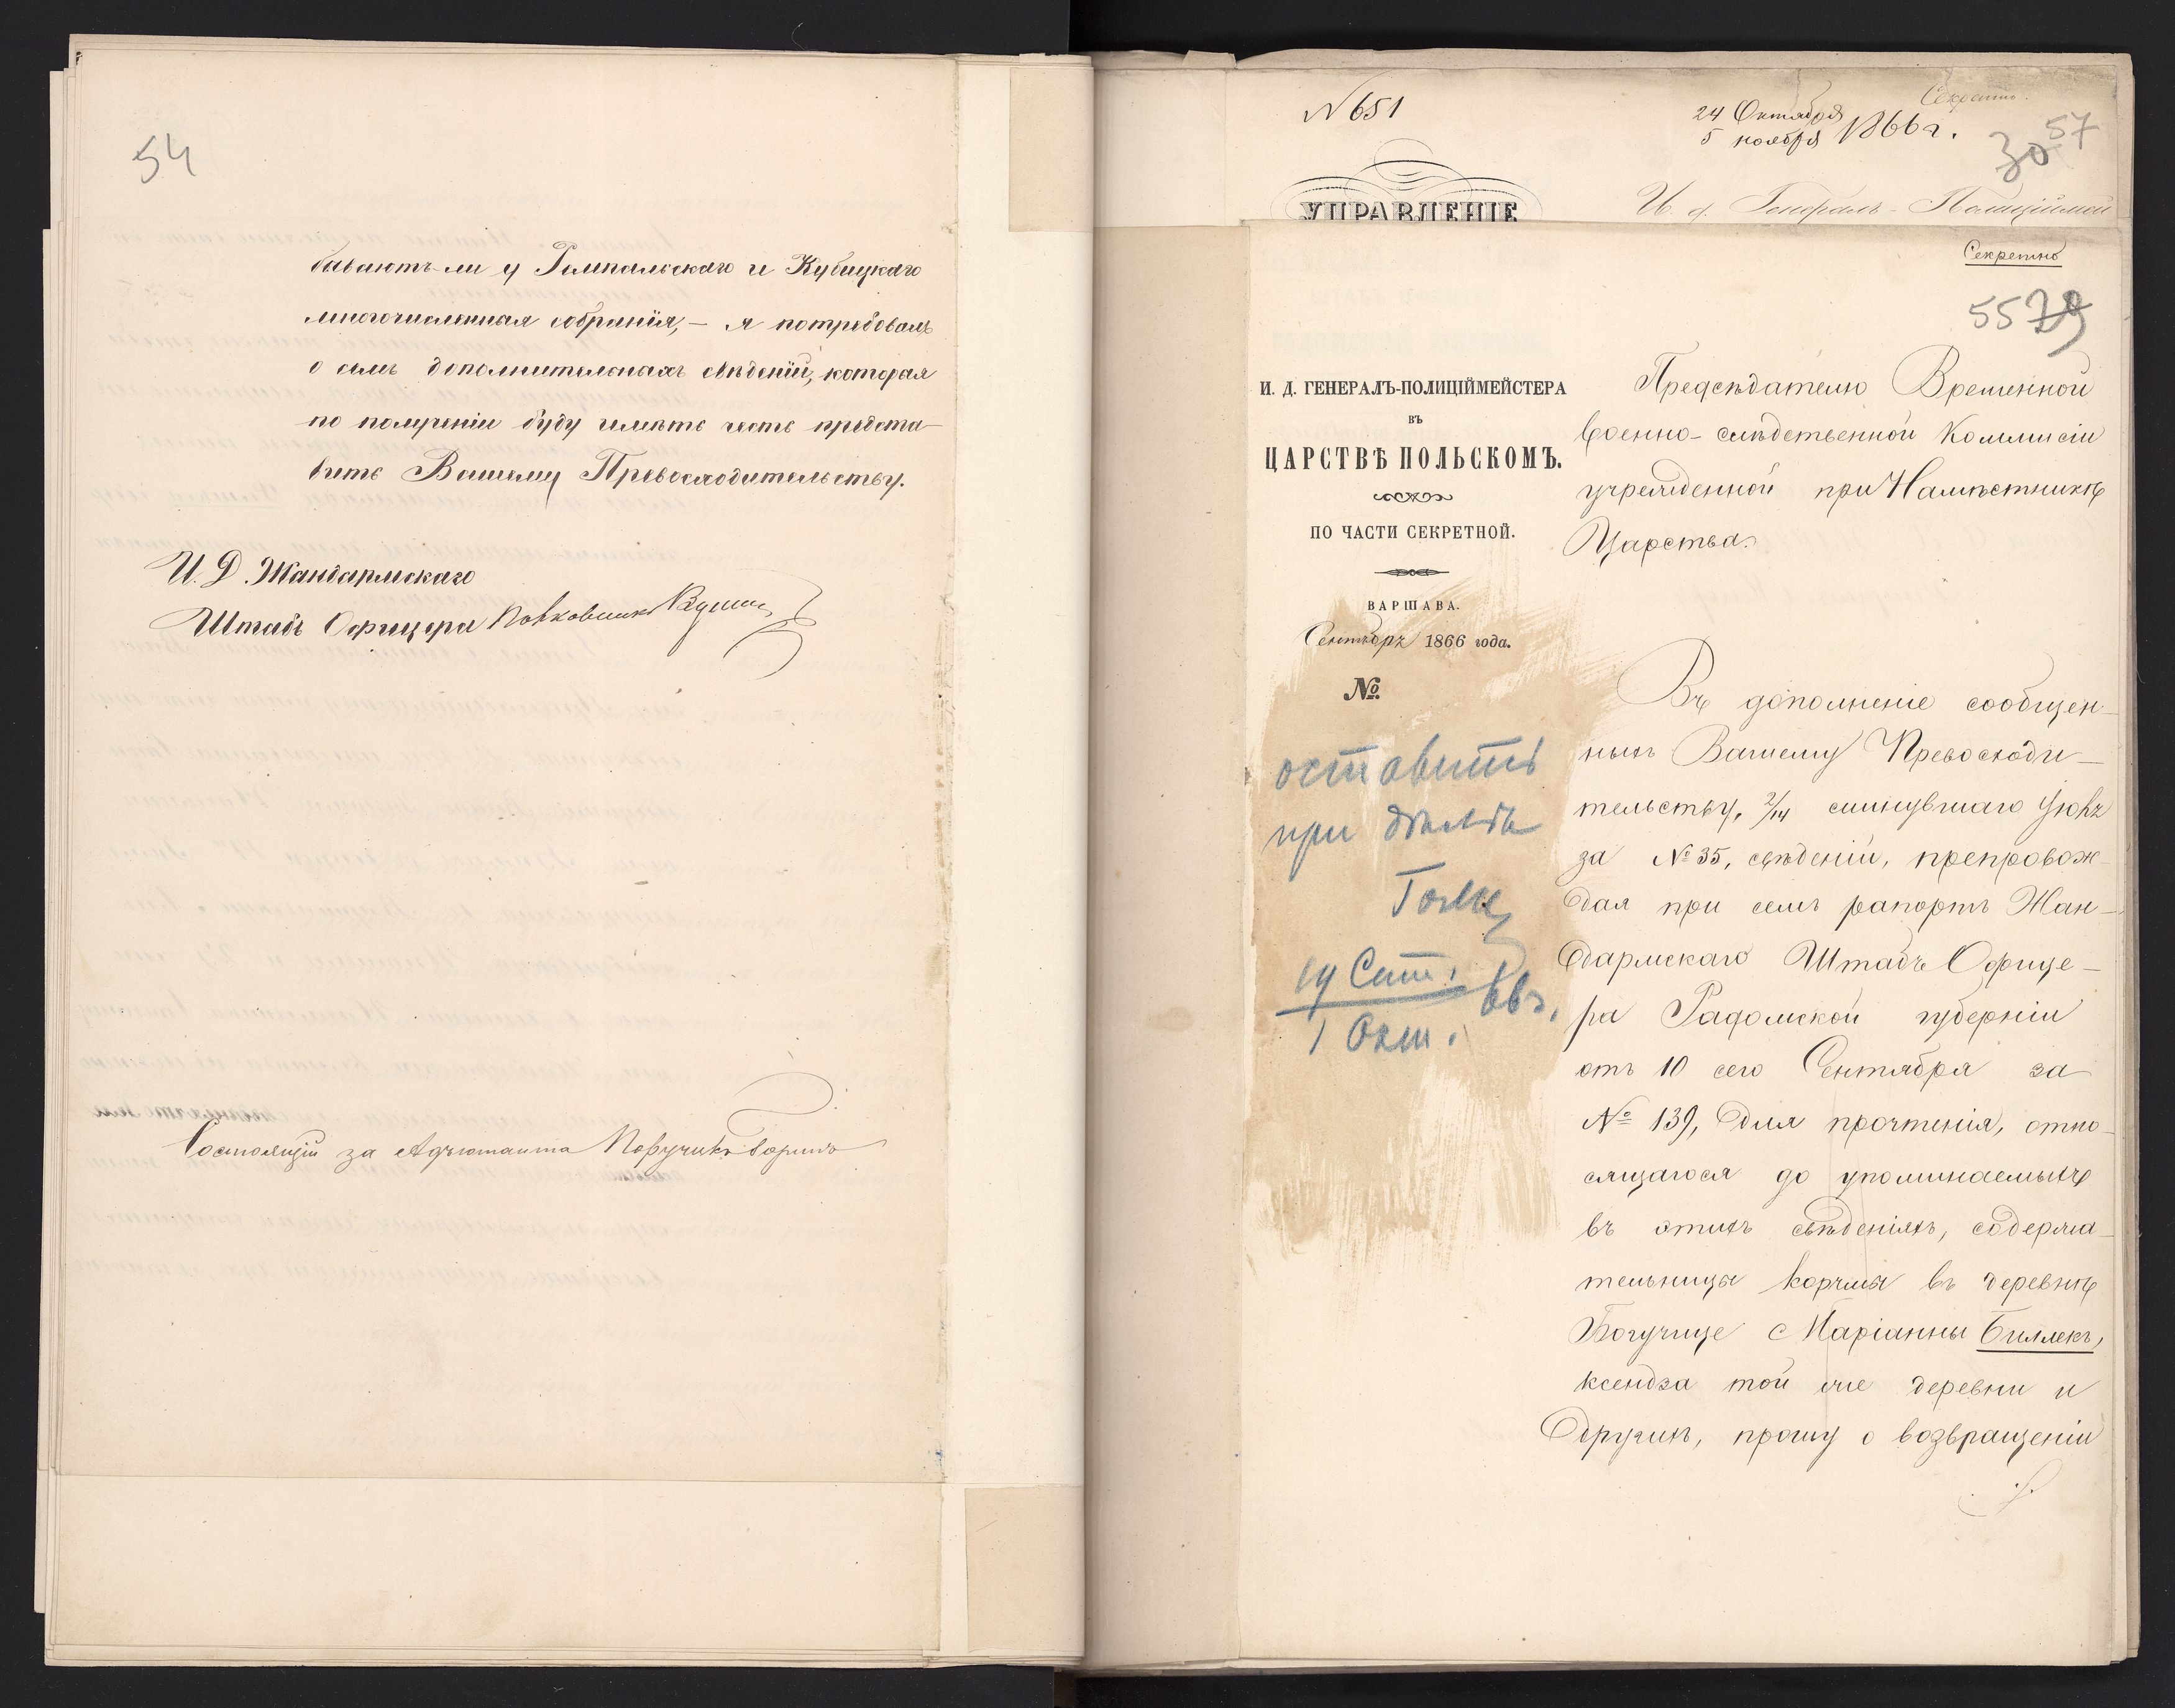 54
бываютъ-ли у Гимпальскаго и Кубицкаго
многочисленныя собранія, — я потребовалъ
о семъ дополнительныхъ свѣденій, которыя
по полученіи буду имѣть честь предста-
вить Вашему Превосходительству.
И. Д. Жандармскаго
Штабъ Офицера Полковникъ
Состоящій за Адъютанта Поручикъ
№ 651
24 Октября
5 ноября 1866 г.
Секретно.
57
30
УПРАВЛЕНІЕ
И. д. Генералъ-Полиціймей
Секретно
55 29
И. Д. ГЕНЕРАЛЪ-ПОЛИЦІЙМЕЙСТЕРА
ВЪ
ЦАРСТВѢ ПОЛЬСКОМЪ.
ПО ЧАСТИ СЕКРЕТНОЙ.
ВАРШАВА.
Сентября 1866 года.
№
оставить
при дѣлѣ
19 Сент.
1 Окт. 66 г.
Предсѣдателю Временной
Военно-слѣдственной Коммисіи
учрежденной при Намѣстникѣ
Царства.
Въ дополненіе сообщен-
ныхъ Вашему Превосходи-
тельству, 2/14 минувшаго Іюля
за № 35, свѣденій, препровож-
дая при семъ рапортъ Жан-
дармскаго Штабъ Офице-
ра Радомской губерніи
отъ 10 сего Сентября за
№ 139, для прочтенія, отно-
сящагося до упоминаемыхъ
въ этихъ свѣденіяхъ, содержа-
тельницы корчмы въ деревнѣ
Богучице Маріанны Биллекъ,
ксендза той же деревни и
другихъ, прошу о возвращеніи